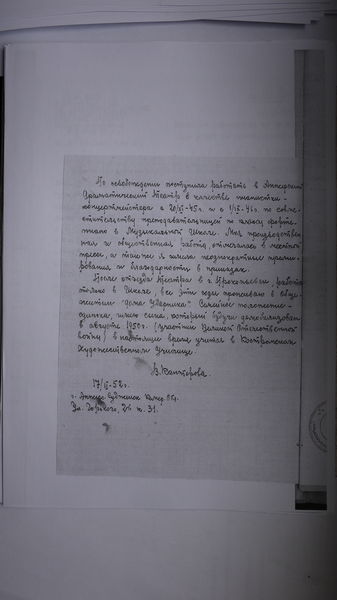 По освобождении поступила работать в Анжерский
Драматический Театр в качестве пианистки-
концертмейстера с 20/VI-45г. и с 1/IX-46г. по совме-
стительству преподавательницей по классу форте-
пиано в Музыкальной Школе. Моя производствен-
ная и общественная работа отмечалась в местной
прессе, а также я имела неоднократные преми-
рования и благодарности в приказах.
После отъезда Театра в г. Прокопьевск, работаю
только в Школе, все эти годы проживаю в Обще-
житии "Дома Ударника". Семейное положение -
одинокая, имею сына, который будучи демобилизован
в августе 1950г. (участник Великой Отечественной
войны) в настоящее время учится в Костромском
Художественном Училище.
В. Кантерова.
17/ 52г.
г. Анжеро-Судженск Кемер. обл.
Ул. Горького, 24 к. 31.